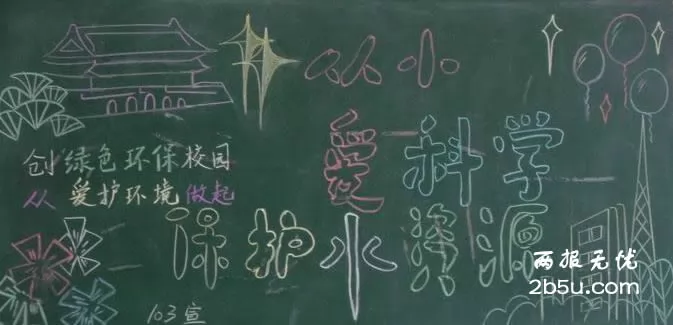 从小
爱科学
创绿色环保校园
从爱护环境做起
保护水资源
103宣
两报无忧
2b5u.com